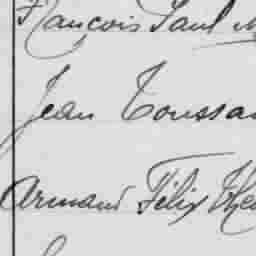 François Paul
Jean Toussa
Armand Félix The